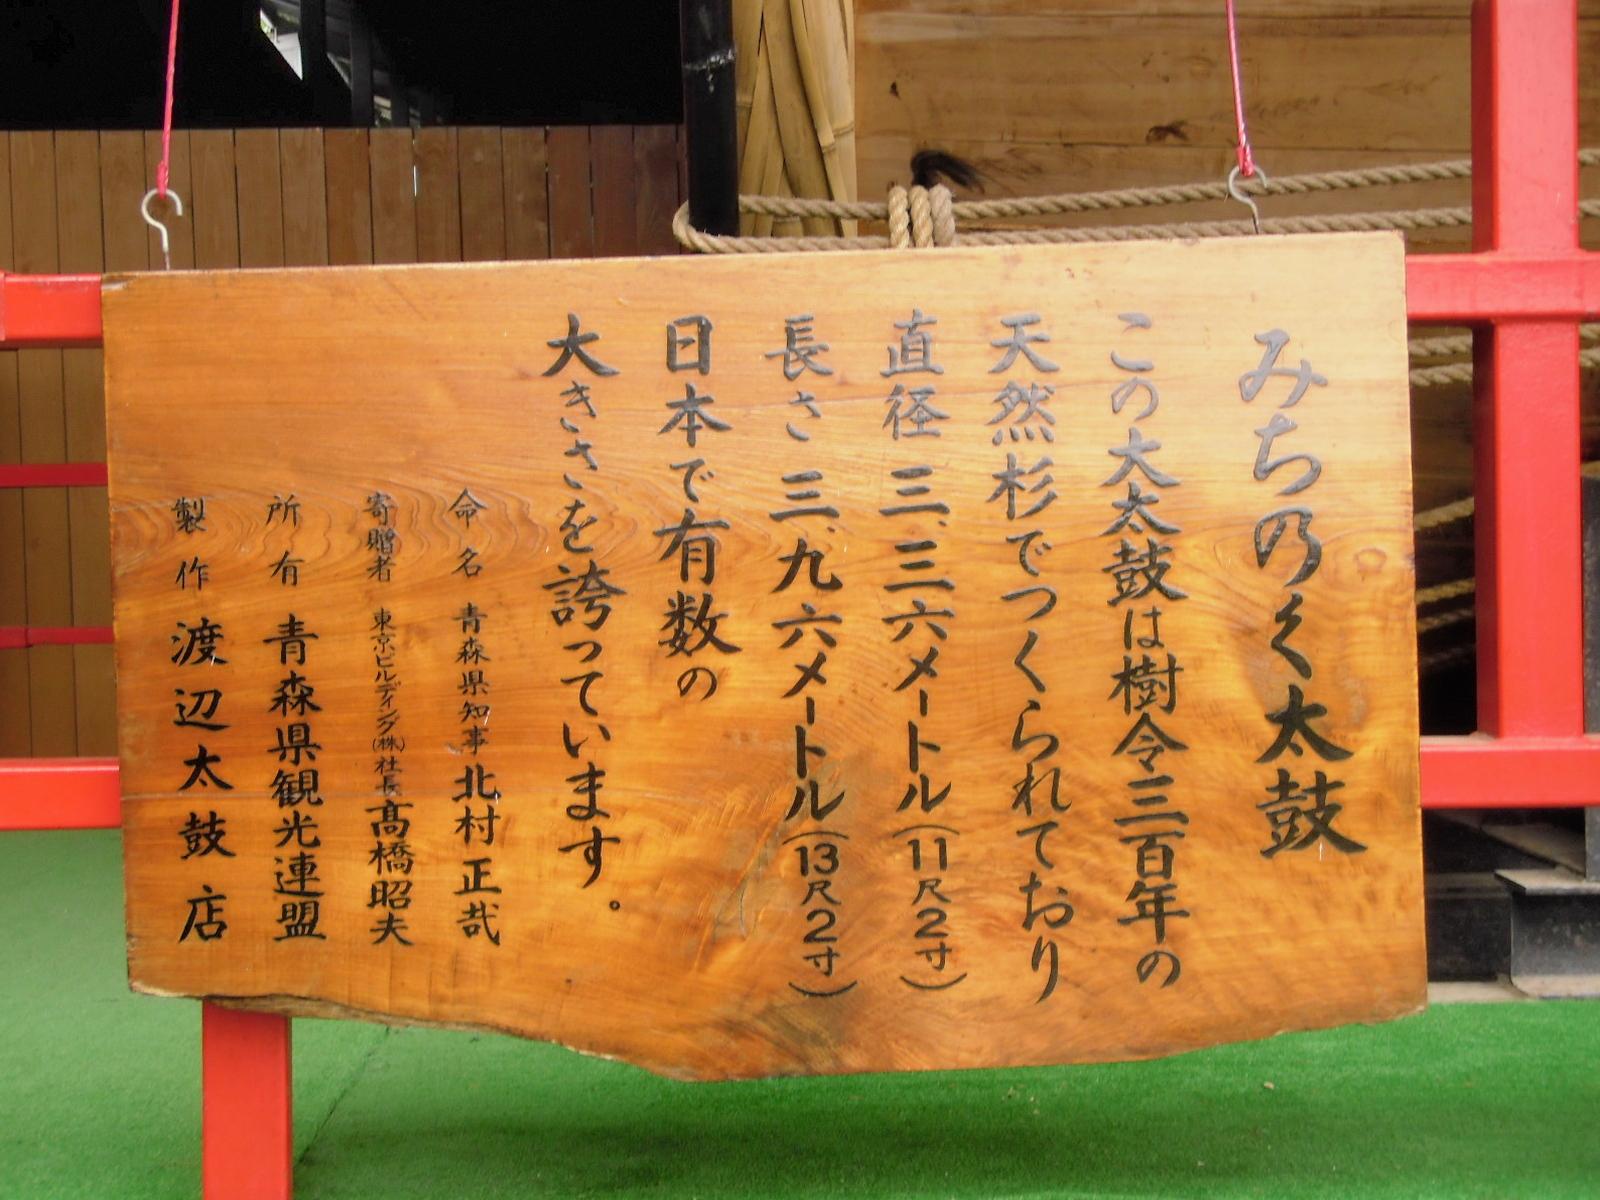 みちのく太鼓
この大太鼓は樹令三百年の
天然杉でつくられており
直径 三、三六メートル(11尺2寸)
長さ 三、九六メートル(13尺2寸)
日本で有数の
大きさを誇っています。
命名 青森県知事 北村正哉
寄贈者 東京ビルディング(株)社長 髙橋昭夫
所有 青森県観光連盟
製作 渡辺太鼓店